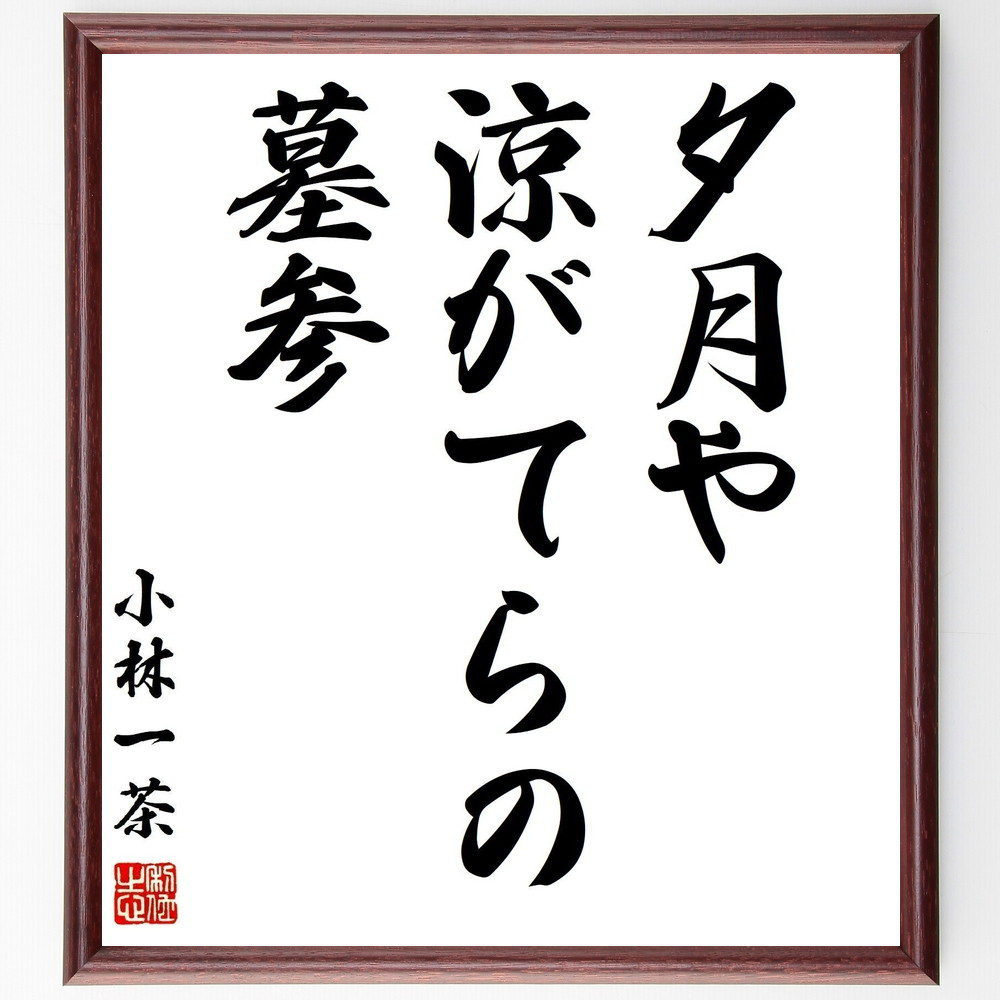 夕月や
涼がてらの
墓参
小林一茶